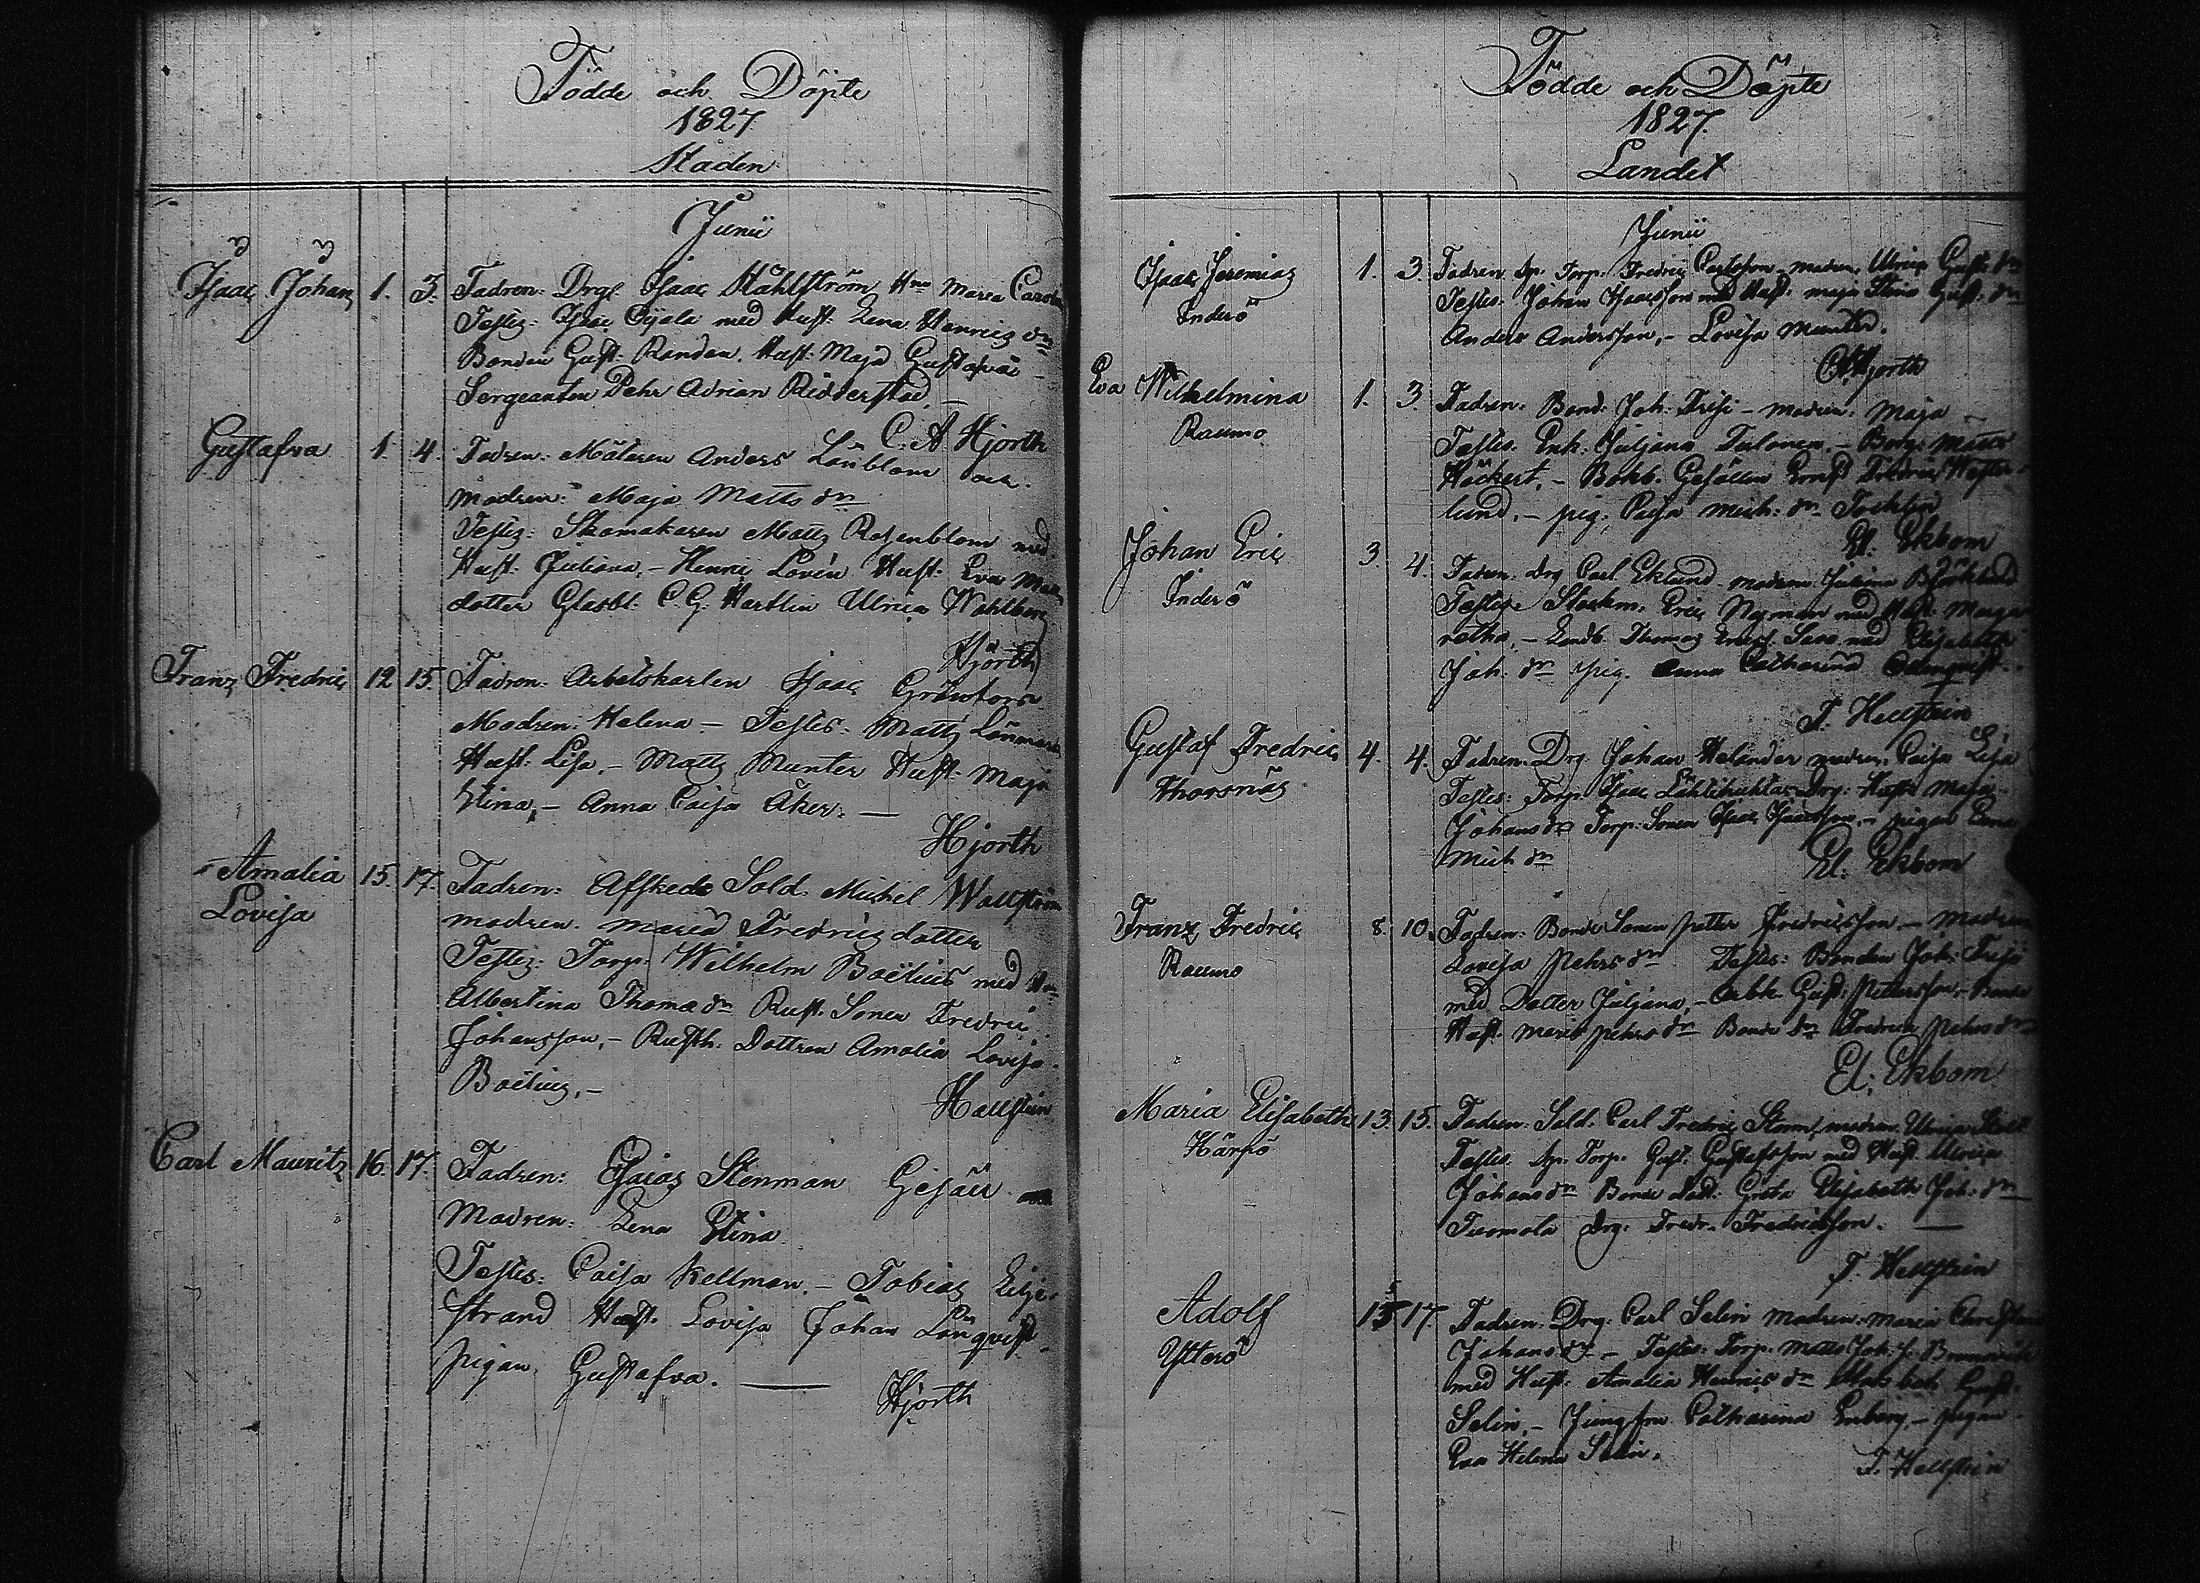 Födde och Döpte
1827.
Staden
Junii
Isaac Johan 1. 3. Fadren: Drgn Isaac Ståhlström Hu Maria
Testes: Isaac Cijala med Hust: Lena Henrics dr
Bonden Gust: Randan, Hust: Maja Gustafva
Sergeanten Pehr Adrian Ridderstad. —
C. A. Hjorth
Gustafva 1. 4. Fadren: Målaren Anders Lönblom och
Modren: Maja Matts dr
Testes: Skomakaren Matts Rosenblom med
Hust: Juliana, – Henric Lovén Hust: Eva
dotter Glasbl: C. G. Hartlin Ulrica Wahlberg
Hjorth
Franz Fredric 12 15. Fadren: Arbetskarlen Isaac
Modren: Helena – Testes: Matts
Hust: Lisa, – Matts Munter Hust: Maja
Stina, – Anna Caisa Åker. —
Hjorth
Amalia 15. 17. Fadren: Afskeds Sold: Michel Wallström
Lovisa modren. Maria Fredrics dotter
Testes: Torp: Wilhelm Boëlius med
Albertina Thomæ dr Rust. Sonen Fredric
Johansson, – Rusth. Dottren Amalia Lovisa
Boëlius, –
Hallstein
Carl Mauritz 16. 17. Fadren: Esaias Stenman Gesäll
Modren: Lena Stina
Testes: Caisa Kellman. – Tobias Lilje-
strand Hust. Lovisa Johan Lönqvist
pigan Gustafva. —
Hjorth
Födde och Döpte
1827.
Landet
Junii
Isaac Jeremias 1. 3. Fadren Sp. Torp. Fredric Carlsson modren, Ulrica Gust: dr
Inderö Testes: Johan Isaacsson med Hust: Maja Stina Gust: dr
Anders Andersson, – Lovisa Munter.
CAHjorth
Eva Wilhelmina 1. 3. Fadren: Bond: Joh: Frisi – modren: Maja –
Raumo Testes. Enk: Juljana Tulonen, – Borg: Matts
Höckert, – Bokb. Gesällen Ernst Fredric Wester-
lund, – pig: Caisa Mich: dr
El: Ekbom
Johan Eric 3. 4. Fadren: Drg Carl Eklund modren Juliana Björklund
Inderö Testes: Stockm: Eric Nyman med Hust. Marga-
retha, – Thomas med Elisabeth
Joh. dr pig. Anna Catharina
F. Hellstein
Gustaf Fredric 4. 4. Fadren: Drg Johan Helander modren, Caisa Lisa
Thorsnäs Testes: Torp: Isaac Drg: Hust Maja
Johans dr Torp: Sonen Isaac Isaacsson, – pigan
Mich dr El. Ekbom
Franz Fredric 8. 10. Fadren: Bonde Sonen Petter Fredricsson. – Modren
Raumo Lovisa Pehrs dr Testes: Bonden Joh: Frisi
med Dotter Juljana, – Arbk. Gust: Pettersson, – Bonde
Hust. Maria Pehrs dr Bonde dr Fredrica Pehrs dr
El: Ekbom
Maria Elisabeth 13. 15. Fadren. Sold. Carl Fredric Storm, modren Ulrica
Härpö Testes. Sp. Torp. Gust: Gustafsson med Hust Ulrica
Johans dr Bonde dott: Greta Elisabeth Joh: dr
Tuomola Drg: Fredr. Fredricsson. —
F. Hellstein
Adolf 15 17. Fadren. Drg: Carl Selin Modren: Maria Christina
Ytterö Johans dr – Testes: Torp. Matts Joh: s.
med Hust. Amalia Henrics dr Gust.
Selin, – Jungfru Catharina Enberg, – pigan
Eva Helena Selin.
F. Hellstein